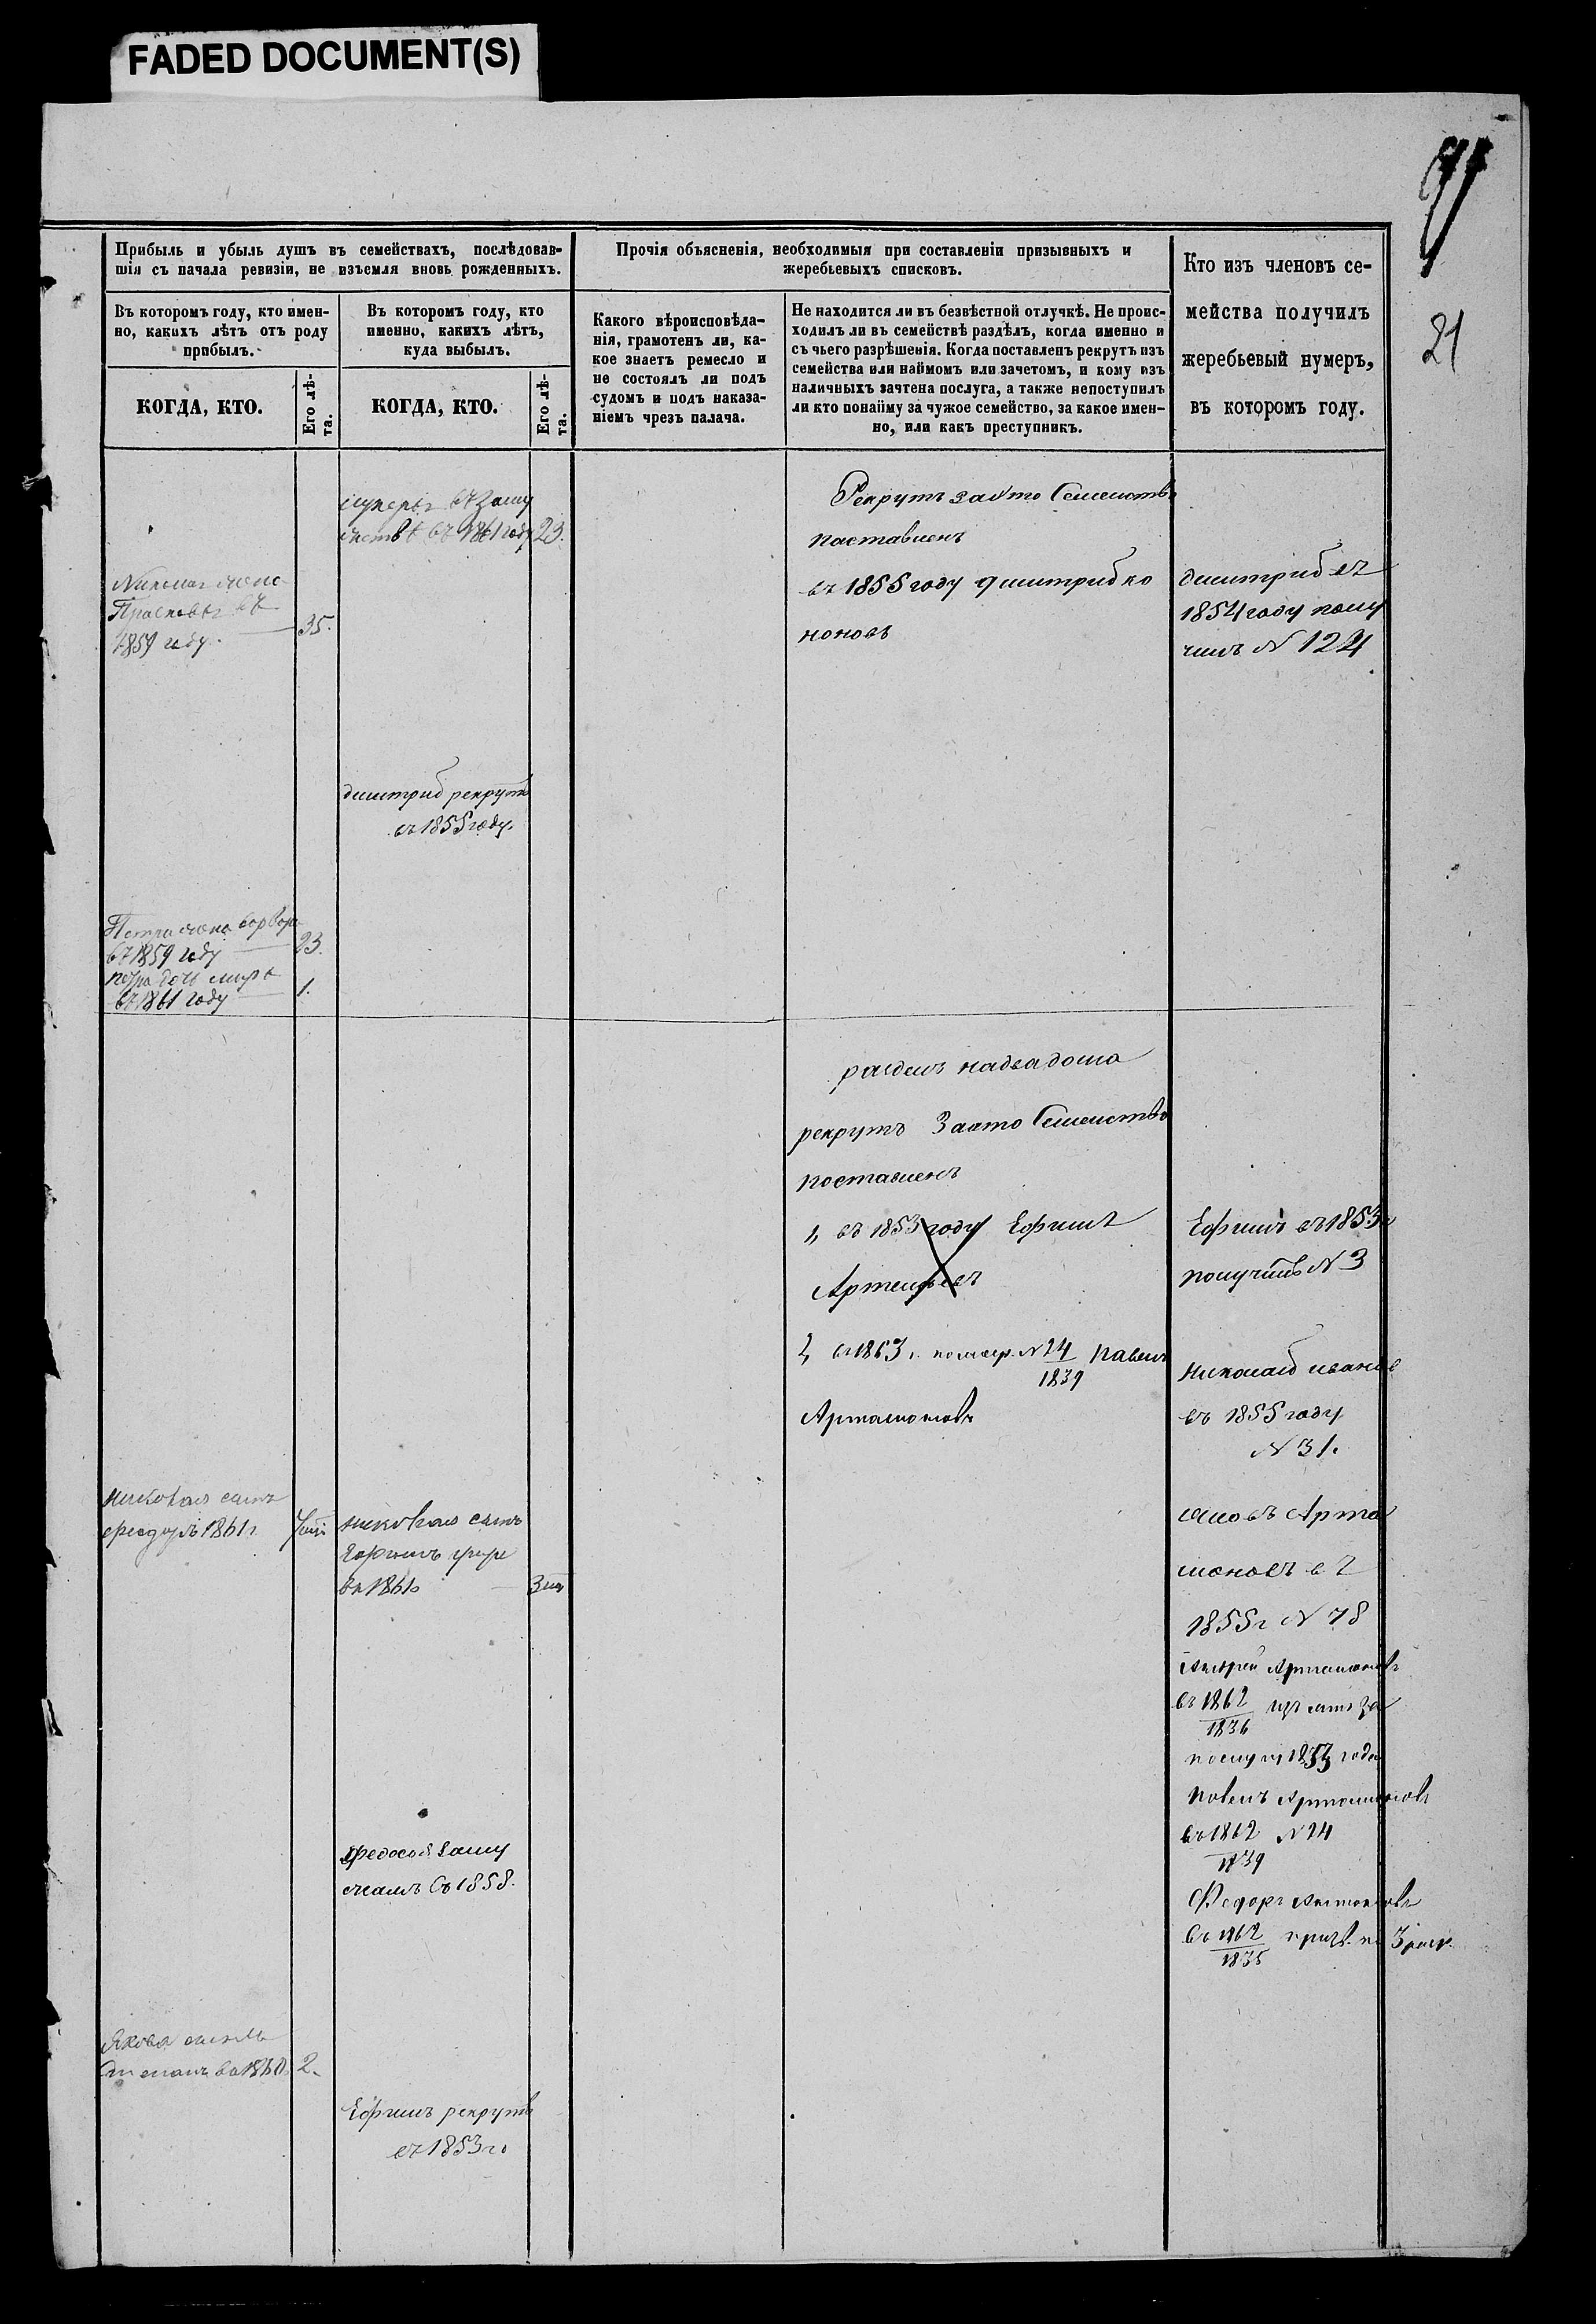 FADED DOCUMENT(S)
21
Прибыль и убыль душъ въ семействахъ, послѣдовав-
шія съ начала ревизіи, не изъемля вновь рожденныхъ.
Въ которомъ году, кто имен-
но, какихъ лѣтъ отъ роду
прибылъ.
КОГДА, КТО.
Его лѣ-
та.
Въ которомъ году, кто
именно, какихъ лѣтъ,
куда выбылъ.
КОГДА, КТО.
Его лѣ-
та.
Прочія объясненія, необходимыя при составленіи призывныхъ и
жеребьевыхъ списковъ.
Какого вѣроисповѣда-
нія, грамотенъ ли, ка-
кое знаетъ ремесло и
не состоялъ ли подъ
судомъ и подъ наказа-
ніемъ чрезъ палача.
Не находится ли въ безвѣстной отлучкѣ. Не проис-
ходилъ ли въ семействѣ раздѣлъ, когда именно и
съ чьего разрѣшенія. Когда поставленъ рекрутъ изъ
семейства или наймомъ или зачетомъ, и кому изъ
наличныхъ зачтена послуга, а также непоступилъ
ли кто понайму за чужое семейство, за какое имен-
но, или какъ преступникъ.
Кто изъ членовъ се-
мейства получилъ
жеребьевый нумеръ,
въ которомъ году.
въ 1861 году 23.
жена
въ
1859 году. 35.
дмитрий рекрутъ
въ 1855 году.
Петра жена
въ 1859 году 23.
въ 1861 году 1.
Рекрутъ за это Семейство
поставленъ
въ 1855 году дмитрий ко
новъ
дмитрий въ
1854 году полу
чилъ N 124
разделъ на два дома
рекрутъ За это Семейство
поставленъ
1, въ 1853 году Ефимъ
Артемьевъ
2, въ 1863 г. N 24 Павелъ
1839
Артамоновъ
Ефимъ въ 1853 г
получилъ N 3
Николай Иванов
въ 1855 году
N 31.
Яковъ Арта
моновъ въ
1855 г N 78
Андрей Артамоновъ
въ 1862
1836
1853 года
Павелъ Артамоновъ
въ 1862 N 24
1839
Федоръ
въ 1862
1835
сынъ
1861 г.
сынъ
въ 1861 г.
Федосья Заму
жемъ Съ 1858.
Якова сынъ
Степанъ въ 1860 2.
Ефимъ рекрутъ
въ 1853 г.